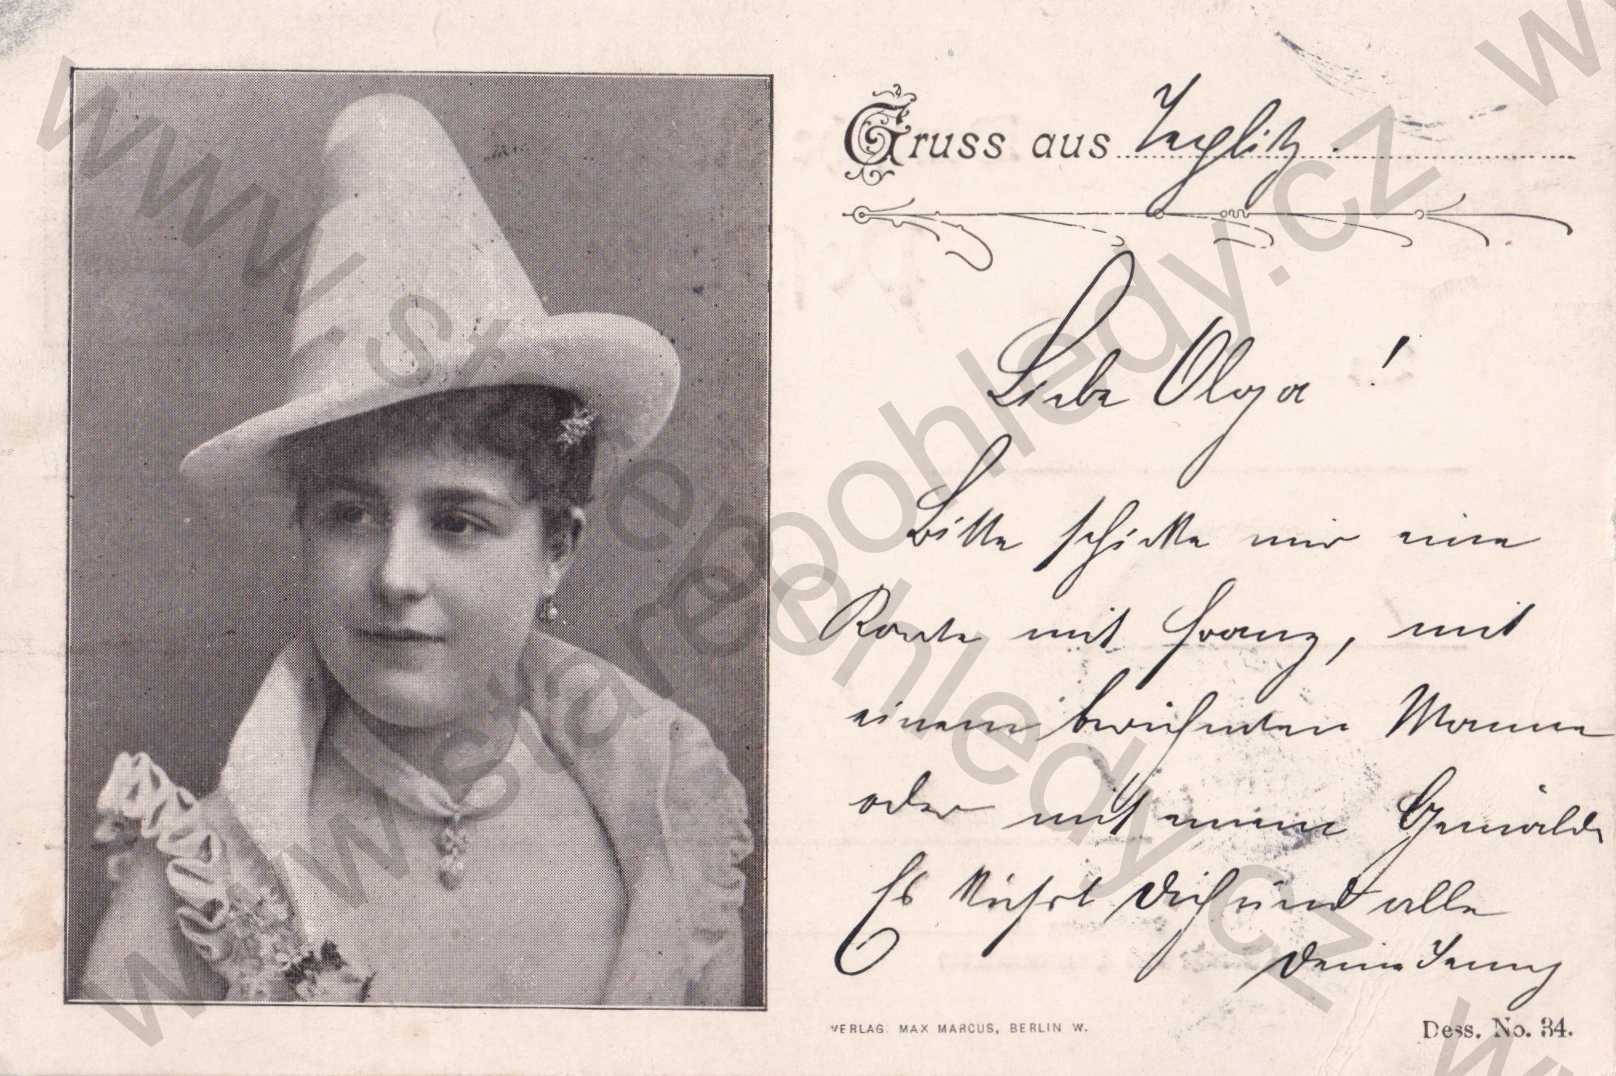 Gruss aus Teplitz.
Liebe Olga!
Bitte schicke mir eine
Karte mit Franz, mit
einem berühmten Manne
oder mit einem Gemälde
Es küßt Dich und alle
Deine Jenny
VERLAG: MAX MARCUS, BERLIN W.
Dess. No. 34.
www.starepohledy.cz
www.starepohledy.cz